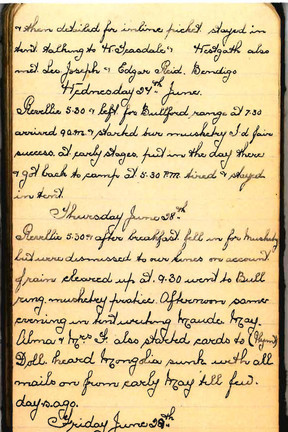 & then detailed for inline picket stayed in
tent talking to W. Teasdale & Westgath also
met Leo Joseph & Edgar Reid. Bendigo
Wednesday 27th June.
Reveille 5.30 & left for Bullford range at 7.30
arrived 9 am & started our musketry I'd fair
success at early stages. put in the day there
& got back to camp at 5.30 P.M. tired & stayed
in tent.
Thursday June 28th
Reveille 5.30 & after breakfast fell in for Musketry
but were dismissed to our lines on account
of rain cleared up at 9.30 went to Bull
ring. musketry pratice. Afternoon same
evening in tent writing Maude May.
Alma & Mrs F. also started cards to (Plym)
Doll. heard Mongolia sunk with all
mails on from early May till few
days ago.
Friday June 29th